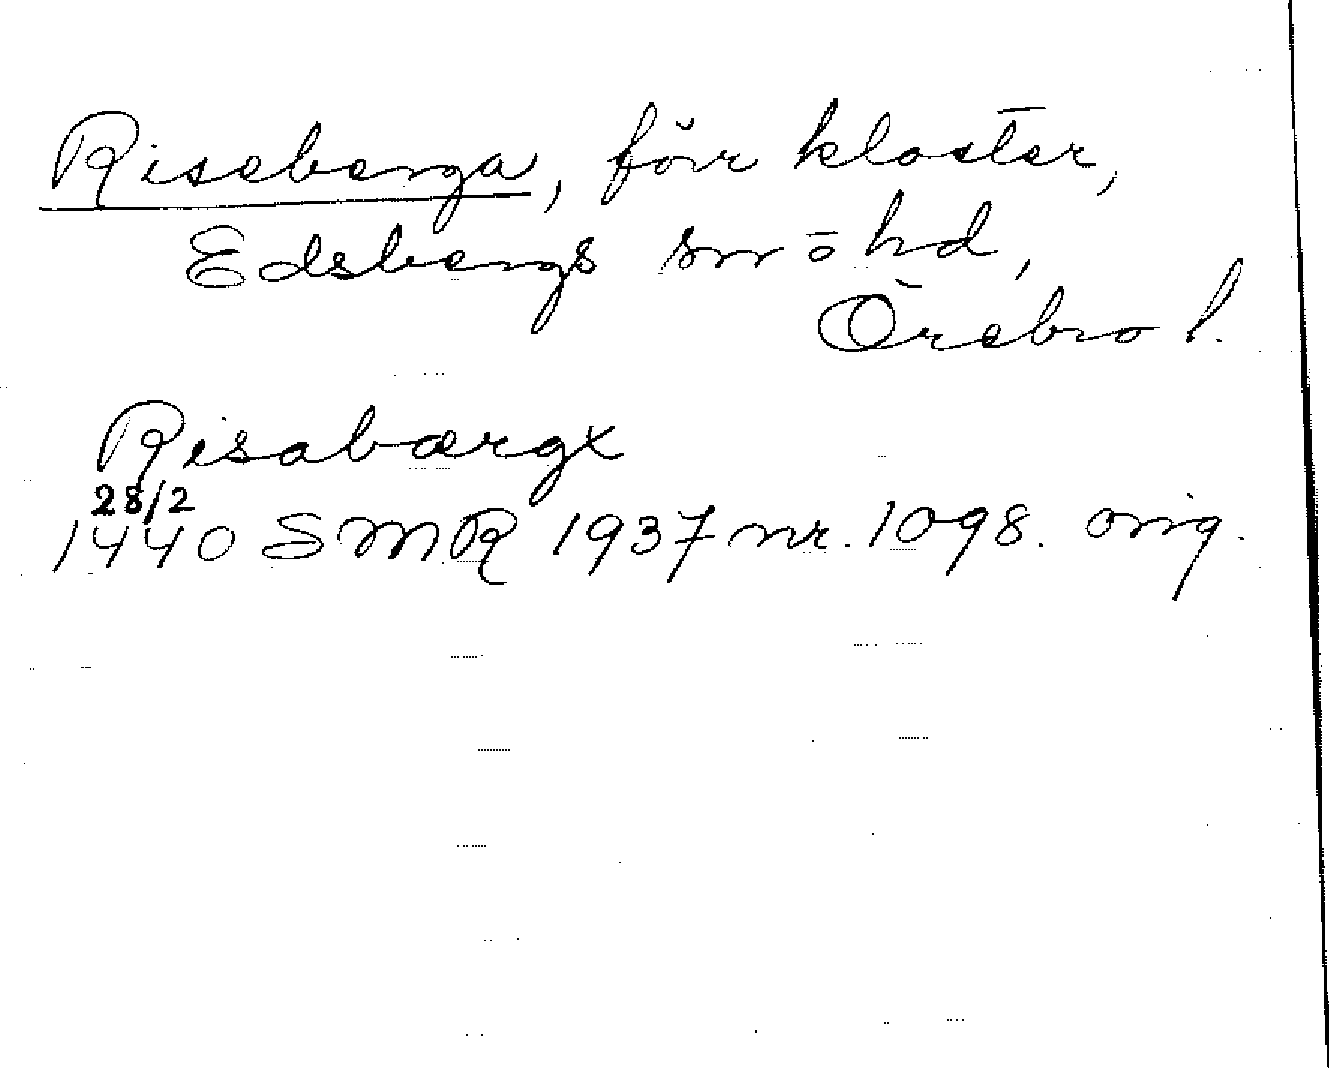 Riseberga, förr kloster,
Edsbergs sn o hd,
Örebro l.
Risabærgx
28/2
1440 SMR 1937 nr. 1098. orig.